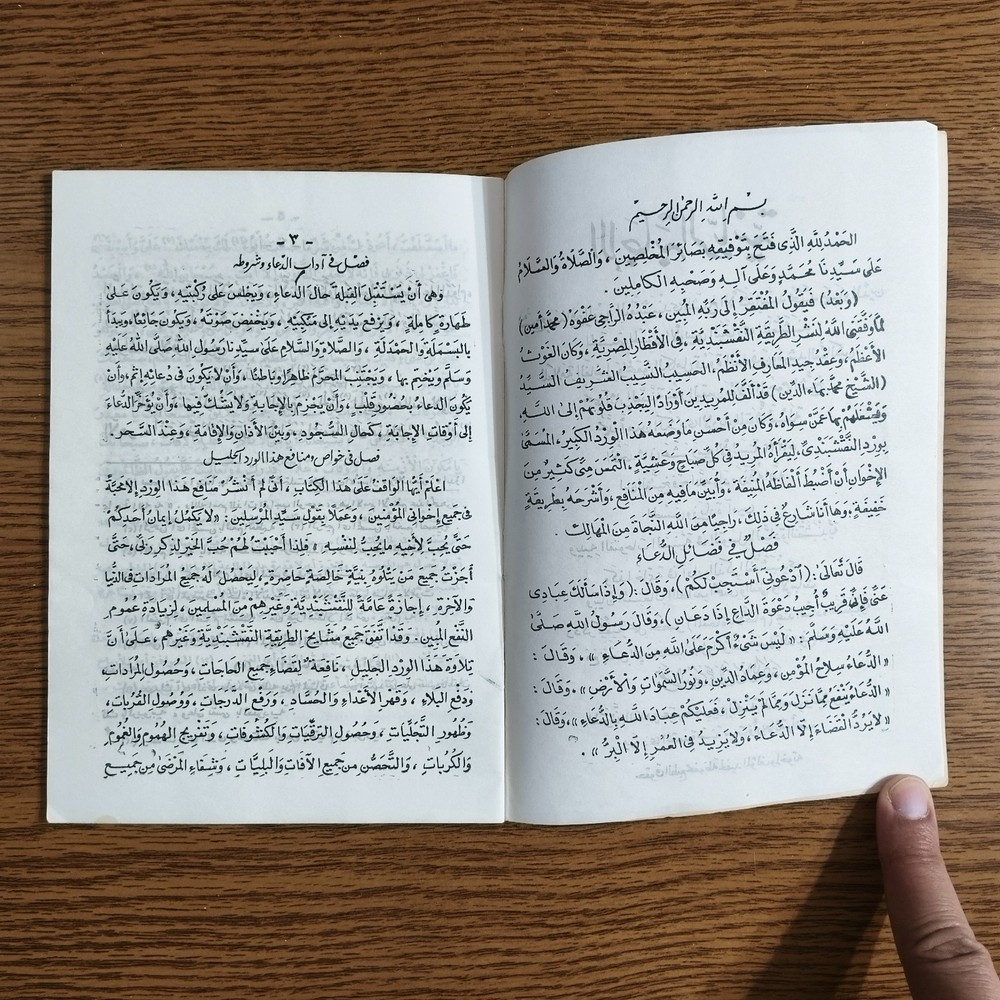 بسم الله الرحمن الرحيم
الحَمْدُ للهِ الَّذِى فَتَحَ بِتَوْفِيقِهِ بَصَائِرَ المُخْلِصِينَ ، وَالصَّلَاةُ وَالسَّلَامُ
عَلَى سَيِّدِنَا مُحَمَّدٍ وَعَلَى آلِهِ وَصَحْبِهِ الكَامِلِينَ .
(وَبَعْدُ) فَيَقُولُ المُفْتَقِرُ إِلَى رَبِّهِ المُبِينِ ، عَبْدُهُ الرَّاجِى عَفْوَهُ (محمد أمين)
لَمَّا وَفَّقَنِى اللهُ لِنَشْرِ الطَّرِيقَةِ النَّقْشَبَنْدِيَّةِ ، فِى الأَقْطَارِ المِصْرِيَّةِ ، وَكَانَ الغَوْثُ
الأَعْظَمُ ، وَعِقْدُ جِيدِ المَعَارِفِ الأَنْظَمُ ، الحَسِيبُ النَّسِيبُ الشَّرِيفُ السَّيِّدُ
(الشَّيْخُ محمد بَهَاءُ الدِّينِ) قَدْ أَلَّفَ لِلْمُرِيدِينَ أَوْرَادًا لِيَجْذِبَ قُلُوبَهُمْ إِلَى اللهِ،
وَيَشْغَلَهُمْ بِهَا عَمَّنْ سِوَاهُ ، وَكَانَ مِنْ أَحْسَنِ مَا وَضَعَهُ هَذَا الوِرْدُ الكَبِيرُ ، المُسَمَّى
بِوِرْدِ النَّقْشَبَنْدِىِّ ، لِيَقْرَأَهُ المُرِيدُ فِى كُلِّ صَبَاحٍ وَعَشِيَّةٍ ، الْتَمَسَ مِنِّى كَثِيرٌ مِنَ
الإِخْوَانِ أَنْ أَضْبِطَ أَلْفَاظَهُ المُنِيفَةَ ، وَأُبَيِّنَ مَا فِيهِ مِنَ المَنَافِعِ ، وَأَشْرَحَهُ بِطَرِيقَةٍ
خَفِيفَةٍ ، وَهَا أَنَا شَارِعٌ فِى ذَلِكَ ، رَاجِيًا مِنَ اللهِ النَّجَاةَ مِنَ المَهَالِكِ .
فَصْلٌ فِى فَضَائِلِ الدُّعَاءِ
قَالَ تَعَالَى : (ادْعُونِى أَسْتَجِبْ لَكُمْ) ، وَقَالَ : (وَإِذَا سَأَلَكَ عِبَادِى
عَنِّى فَإِنِّى قَرِيبٌ أُجِيبُ دَعْوَةَ الدَّاعِ إِذَا دَعَانِ) ، وَقَالَ رَسُولُ اللهِ صَلَّى
اللهُ عَلَيْهِ وَسَلَّمَ : « لَيْسَ شَىْءٌ أَكْرَمَ عَلَى اللهِ مِنَ الدُّعَاءِ » ، وَقَالَ :
« الدُّعَاءُ سِلَاحُ المُؤْمِنِ ، وَعِمَادُ الدِّينِ ، وَنُورُ السَّمَوَاتِ وَالأَرْضِ » ، وَقَالَ :
« الدُّعَاءُ يَنْفَعُ مِمَّا نَزَلَ وَمِمَّا لَمْ يَنْزِلْ ، فَعَلَيْكُمْ عِبَادَ اللهِ بِالدُّعَاءِ » ، وَقَالَ :
« لَا يَرُدُّ القَضَاءَ إِلَّا الدُّعَاءُ ، وَلَا يَزِيدُ فِى العُمُرِ إِلَّا البِرُّ » .
- ٣ -
فَصْلٌ فى آداب الدُّعاء وشروطه
وَهِى أَنْ يَسْتَقْبِلَ القِبْلَةَ حَالَ الدُّعَاءِ ، وَيَجْلِسَ عَلَى رُكْبَتَيْهِ ، وَيَكُونَ عَلَى
طَهَارَةٍ كَامِلَةٍ ، وَيَرْفَعَ يَدَيْهِ إِلَى مَنْكِبَيْهِ ، وَيَخْفِضَ صَوْتَهُ ، وَيَكُونَ جَاثِيًا، وَيَبْدَأَ
بِالبَسْمَلَةِ وَالحَمْدَلَةِ ، وَالصَّلَاةِ وَالسَّلَامِ عَلَى سَيِّدِنَا رَسُولِ اللهِ صَلَّى اللهُ عَلَيْهِ
وَسَلَّمَ وَيَخْتِمَ بِهَا ، وَيَجْتَنِبَ المُحَرَّمَ ظَاهِرًا وَبَاطِنًا ، وَأَنْ لَا يَكُونَ فِى دُعَائِهِ إِثْمٌ ، وَأَنْ
يَكُونَ الدُّعَاءُ بِحُضُورِ قَلْبٍ ، وَأَنْ يَجْزِمَ بِالإِجَابَةِ وَلَا يَشُكَّ فِيهَا ، وَأَنْ يُؤَخِّرَ الدُّعَاءَ
إِلَى أَوْقَاتِ الإِجَابَةِ ، كَحَالِ السُّجُودِ ، وَبَيْنَ الأَذَانِ وَالإِقَامَةِ ، وَعِنْدَ السَّحَرِ .
فصل فى خواص ومنافع هذا الورد الجليل
اعْلَمْ أَيُّهَا الوَاقِفُ عَلَى هَذَا الكِتَابِ ، أَنِّى لَمْ أَنْشُرْ مَنَافِعَ هَذَا الوِرْدِ إِلَّا مَحَبَّةً
فِى جَمِيعِ إِخْوَانِى المُؤْمِنِينَ ، وَعَمَلًا بِقَوْلِ سَيِّدِ المُرْسَلِينَ : « لَا يَكْمُلُ إِيمَانُ أَحَدِكُمْ
حَتَّى يُحِبَّ لِأَخِيهِ مَا يُحِبُّ لِنَفْسِهِ » فَلِذَا أَحْبَبْتُ لَهُمْ حُبَّ الخَيْرِ لِذِكْرِ رَبِّى ، حَتَّى
أَجَزْتُ جَمِيعَ مَنْ يَتْلُوهُ بِنِيَّةٍ خَالِصَةٍ حَاضِرَةٍ ، لِيَحْصُلَ لَهُ جَمِيعُ المُرَادَاتِ فِى الدُّنْيَا
وَالآخِرَةِ ، إِجَازَةً عَامَّةً لِلنَّقْشَبَنْدِيَّةِ وَغَيْرِهِمْ مِنَ المُسْلِمِينَ ، لِزِيَادَةِ عُمُومِ
النَّفْعِ المُبِينِ . وَقَدِ اتَّفَقَ جَمِيعُ مَشَايِخِ الطَّرِيقَةِ النَّقْشَبَنْدِيَّةِ وَغَيْرِهِمْ ، عَلَى أَنَّ
تِلَاوَةَ هَذَا الوِرْدِ الجَلِيلِ ، نَافِعَةٌ لِقَضَاءِ جَمِيعِ الحَاجَاتِ ، وَحُصُولِ المُرَادَاتِ،
وَدَفْعِ البَلَاءِ ، وَقَهْرِ الأَعْدَاءِ وَالحُسَّادِ ، وَرَفْعِ الدَّرَجَاتِ ، وَوُصُولِ القُرُبَاتِ،
وَظُهُورِ التَّجَلِّيَاتِ ، وَحُصُولِ التَّرَقِّيَاتِ وَالكُشُوفَاتِ ، وَتَفْرِيجِ الهُمُومِ وَالغُمُومِ
وَالكُرُبَاتِ ، وَالتَّحَصُّنِ مِنْ جَمِيعِ الآفَاتِ وَالبَلِيَّاتِ ، وَشِفَاءِ المَرْضَى مِنْ جَمِيعِ